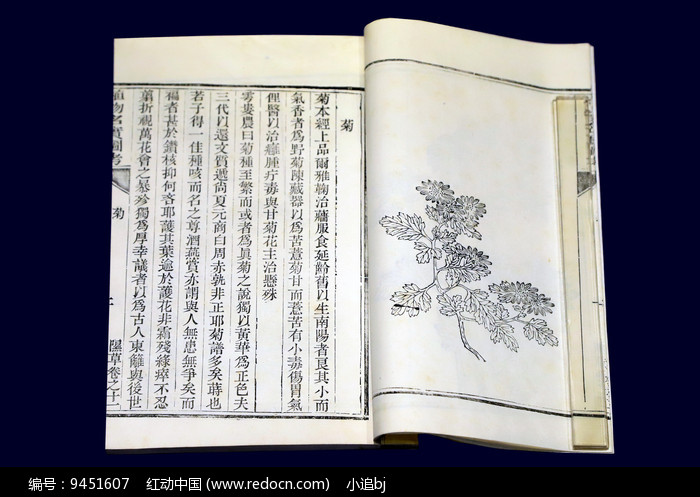 菊
菊本經上品爾雅蘜治蘠服食延齡舊以生南陽者良其小而
氣香者為野菊陳藏器以為苦薏菊甘而薏苦有小毒傷胃氣
俚醫以治癰腫疔毒與甘菊花主治懸殊
雩婁農曰菊種至繁而或者為真菊之說獨以黃華為正色夫
三代以還文質遞尚夏元商白周赤孰非正耶菊譜多矣蒔也
若子得一佳種咳而名之尊酒燕賞亦謂與人無患無爭矣而
禍者甚於鑽核抑何吝耶護其葉逾於護花非霜殘綠瘁不忍
翦折視萬花會之暴殄獨為厚幸議者以為古人東籬與後世
植物名實圖考
菊
隰草卷之十一
编号：9451607 红动中国 (www.redocn.com) 小追bj